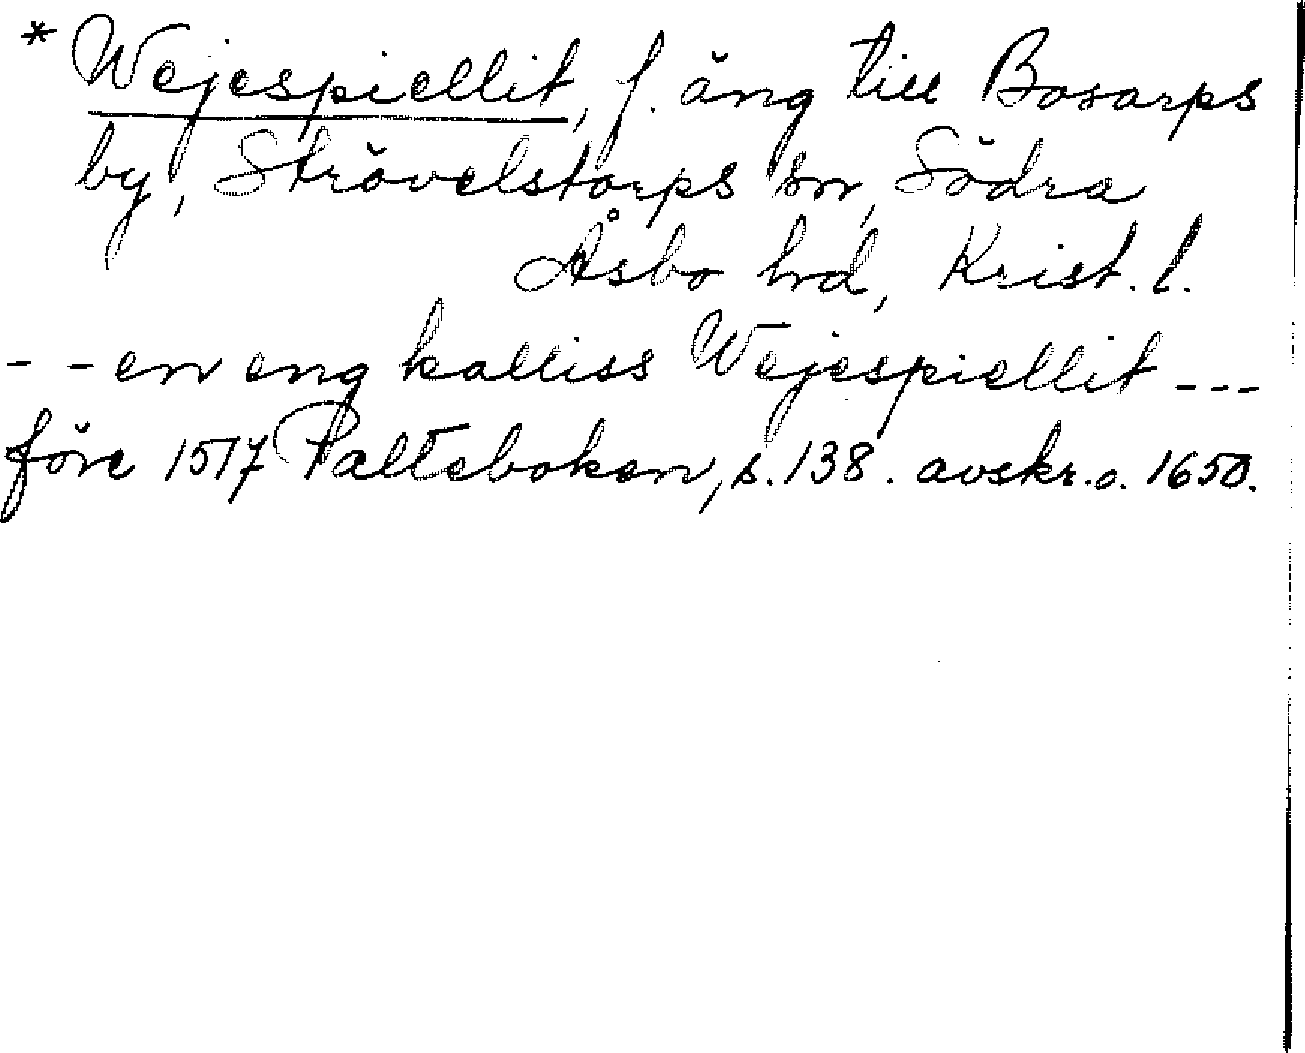 * Wejespiellit, f. äng till Bosarps
by, Strövelstorps sn, Södra
Åsbo hd, Krist. l.
- - en eng kalliss Wejespiellit - - -
före 1517 Palteboken, s. 138. avskr. o. 1650.